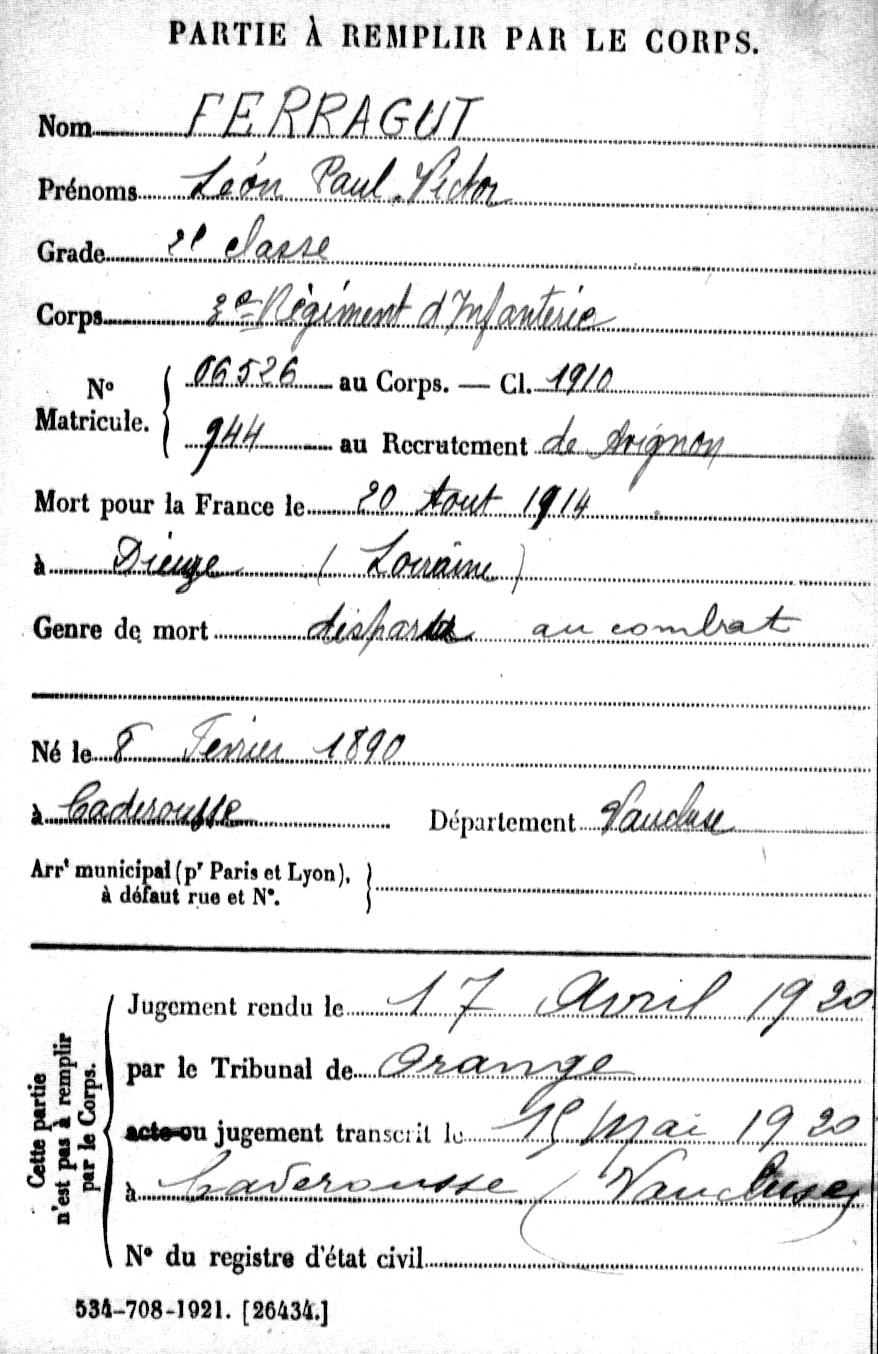 PARTIE À REMPLIR PAR LE CORPS.
Nom FERRAGUT
Prénoms Léon Paul Victor
Grade 2e classe
Corps 3e Régiment d'Infanterie
No Matricule. { 06526 au Corps. — Cl. 1910
944 au Recrutement de Avignon
Mort pour la France le 20 Aout 1914
à Dieuze (Lorraine)
Genre de mort disparu au combat
Né le 8 Fevrier 1890
à Caderousse Département Vaucluse
Arrt municipal (pr Paris et Lyon), à défaut rue et No. }
Cette partie n'est pas à remplir par le Corps.
Jugement rendu le 17 Avril 1920
par le Tribunal de Orange
acte ou jugement transcrit le 15 Mai 1920
à Caderousse (Vaucluse)
No du registre d'état civil
534-708-1921. [26434.]